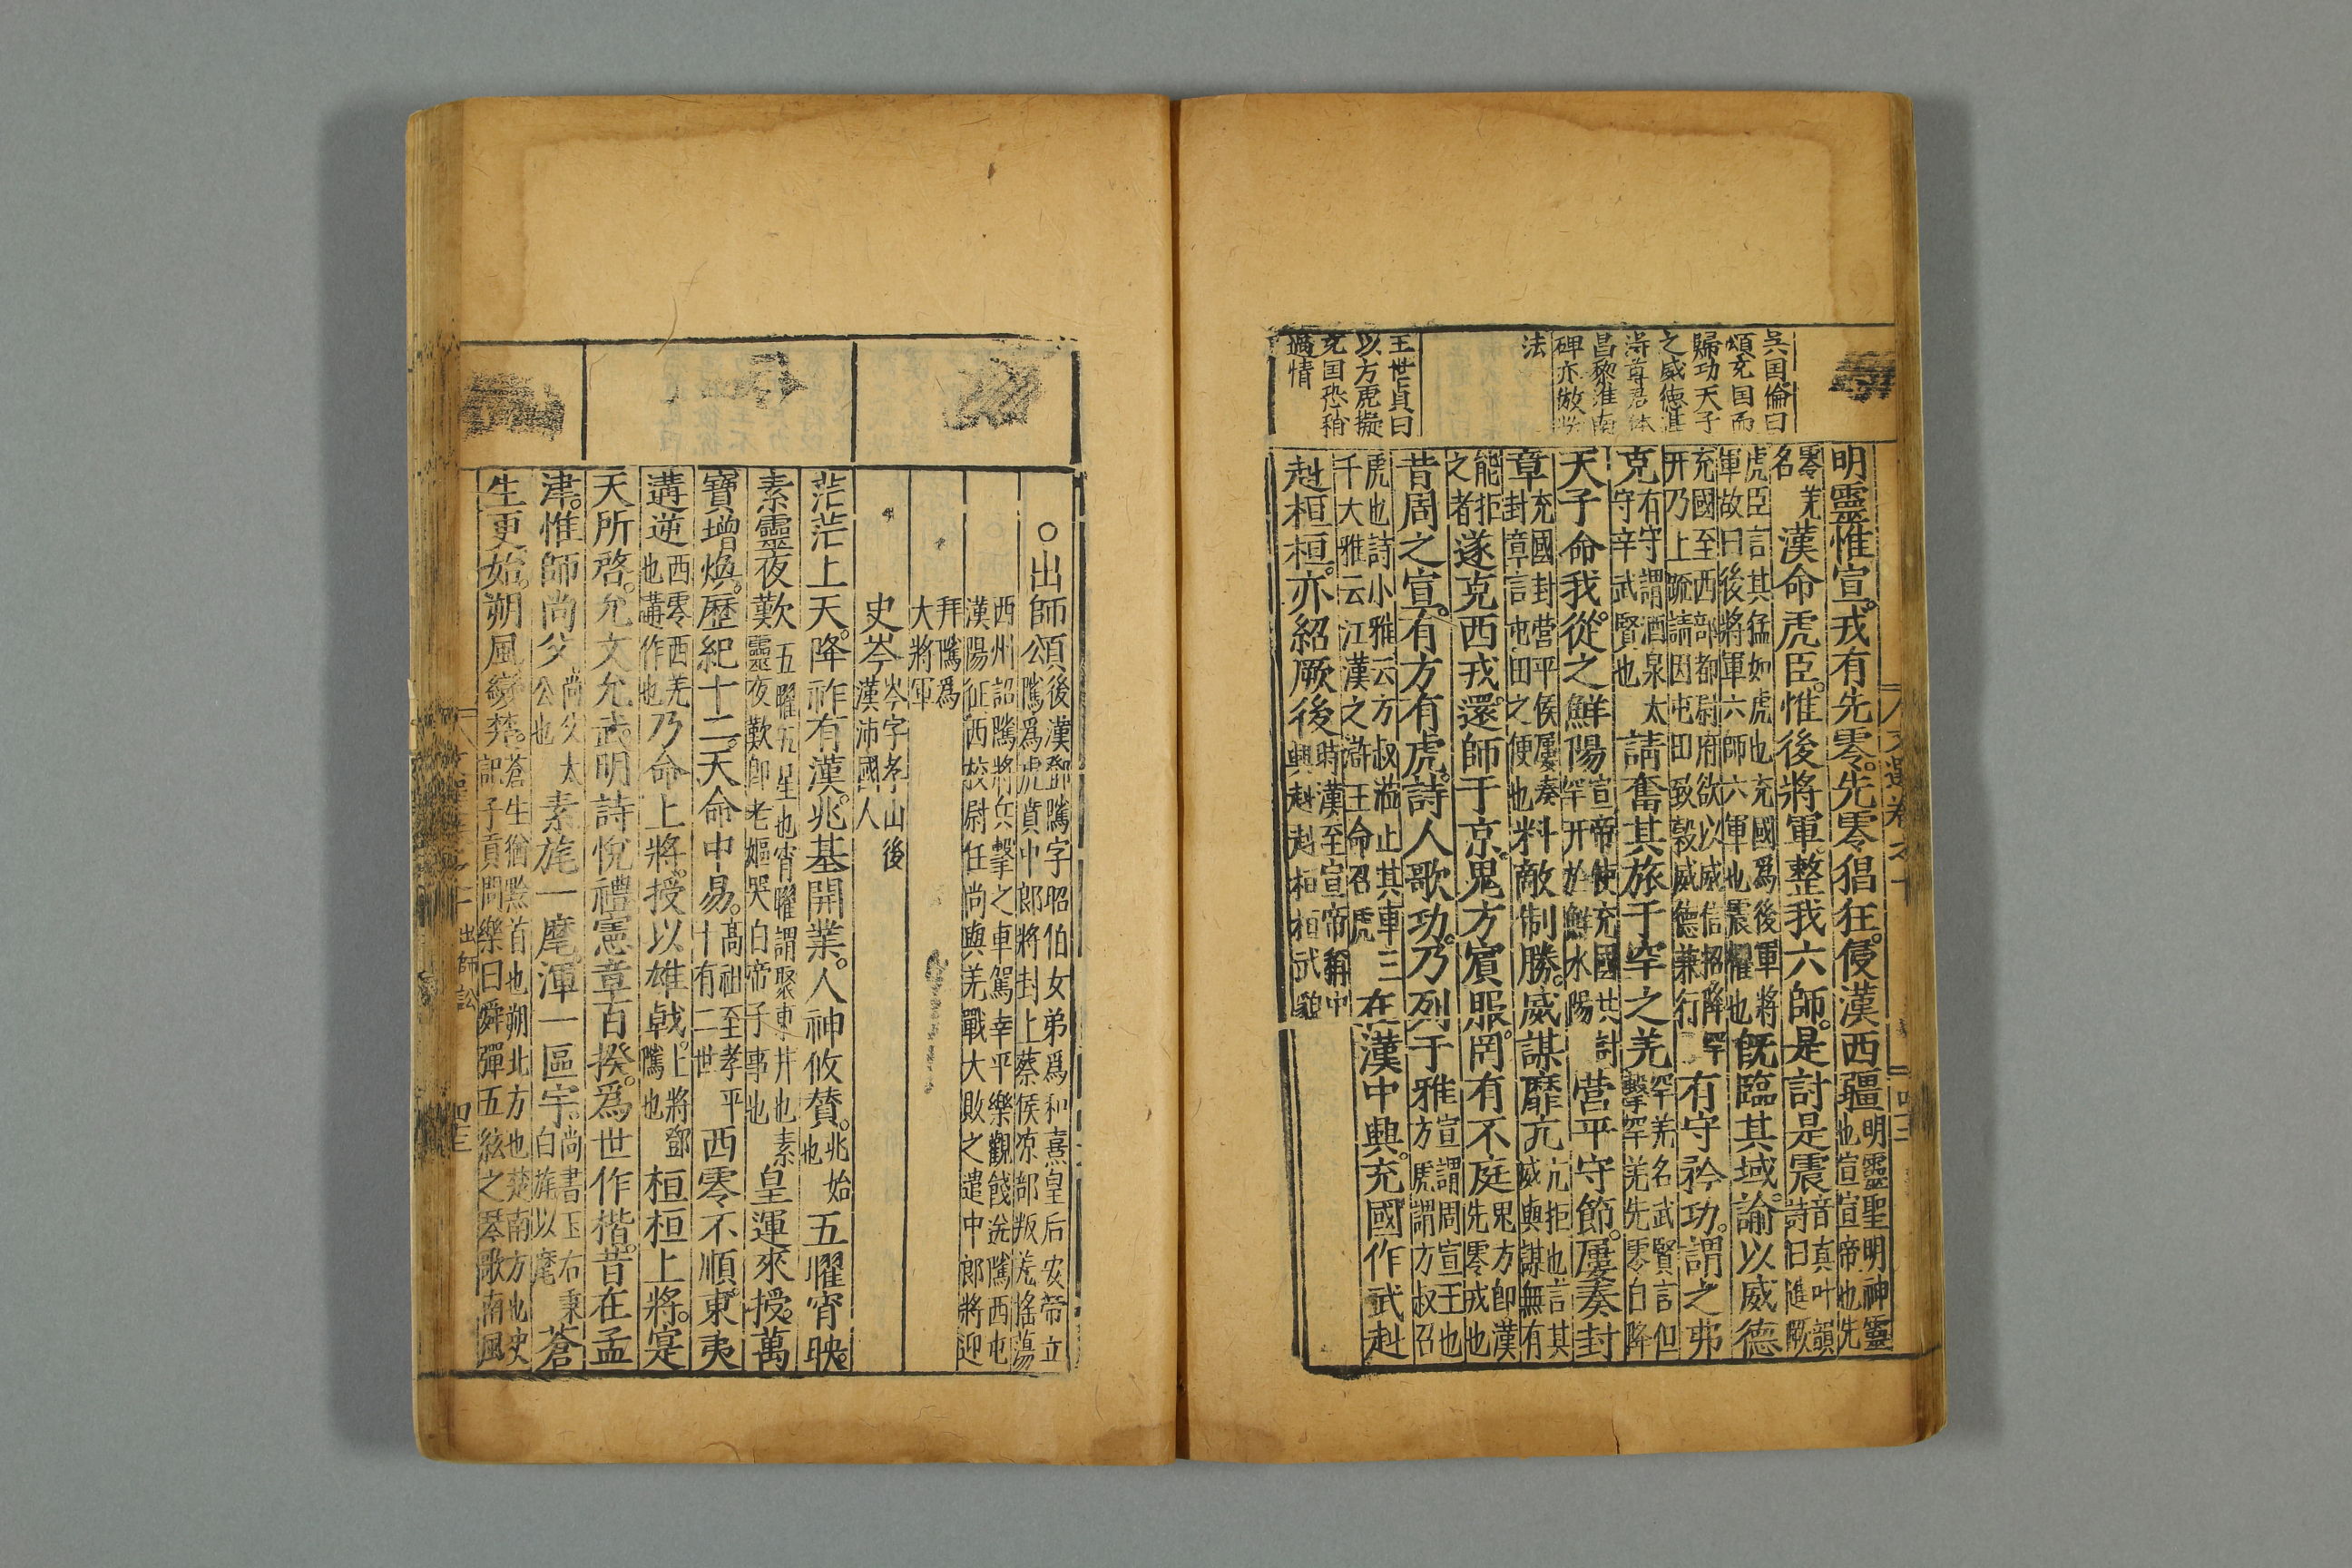 吳国倫曰
頌充国而
歸功天子
之威德甚
得尊君体
昌黎淮南
碑亦倣此
法
王世貞曰
以方虎擬
充国恐稍
過情
明靈惟宣。戎有先零。先零猖狂。侵漢西疆
明靈聖明神靈
也宣宣帝也先
零羌
名
漢命虎臣。惟後將軍。整我六師。是討是震
音真叶韻
詩曰進厥
虎臣言其猛如虎也充國爲後軍將
軍故曰後將軍六師六軍也震耀也
旣臨其域。諭以威德
充國至西部都尉府欲以威信招降罕
开乃上疏請因屯田致敦威德兼行
有守矜功。謂之弗
克
右守謂酒泉太
守辛武賢也
請奮其旅于罕之羌
罕羌名武賢言但
擊罕羌先零自降
天子命我。從之鮮陽
宣帝使充國共討
罕开於鮮水陽
營平守節。屢奏封
章
充國封營平侯屢奏
封章言屯田之便也
料敵制勝。威謀靡亢
亢拒也言其
威與謀無有
能拒
之者
遂克西戎。還師于京。鬼方賓服。罔有不庭
鬼方卽漢
先零戎也
昔周之宣。有方有虎。詩人歌功。乃列于雅
宣謂周宣王也
方虎謂方叔召
虎也詩小雅云方叔涖止其車三
千大雅云江漢之滸王命召虎
在漢中興。充國作武赳
赳桓桓。亦紹厥後
時漢至宣帝稱中
興赳赳桓桓武貌
○出師頌
後漢鄧隲字昭伯女弟爲和熹皇后安帝立
隲爲虎賁中郎將封上蔡侯凉部叛羌搖蕩
西州詔隲將兵擊之車駕幸平樂觀餞送隲西屯
漢陽征西校尉任尚與羌戰大敗之遣中郎將迎
拜隲爲
大將軍
史岑
岑字孝山後
漢沛國人
茫茫上天。降祚有漢。兆基開業。人神攸贊。
兆始
也
五曜宵映。
素靈夜歎
五曜五星也宵曜謂聚東井也素
靈夜歎卽老嫗哭白帝子事也
皇運來授。萬
寶增煥。歷紀十二。天命中易。
高祖至孝平
十有二世
西零不順。東夷
遘逆
西零西羌
也遘作也
乃命上將。授以雄戟。
上將鄧
隲也
桓桓上將。寔
天所啓。允文允武。明詩悅禮。憲章百揆。爲世作楷。昔在孟
津。惟師尚父
尚父太
公也
素旄一麾。渾一區宇。
尚書王右秉
白旄以麾
蒼
生更始。朔風變楚。
蒼生猶黔首也朔北方也楚南方也史
記子貢問樂曰舜彈五絃之琴歌南風
出師頌
四三